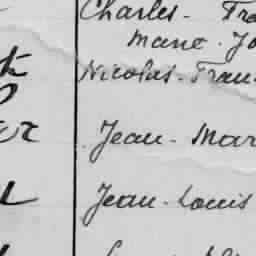 Charles - Fra
Marie - Jo
Nicolas - Fran
Jean - Mar
Jean - Louis